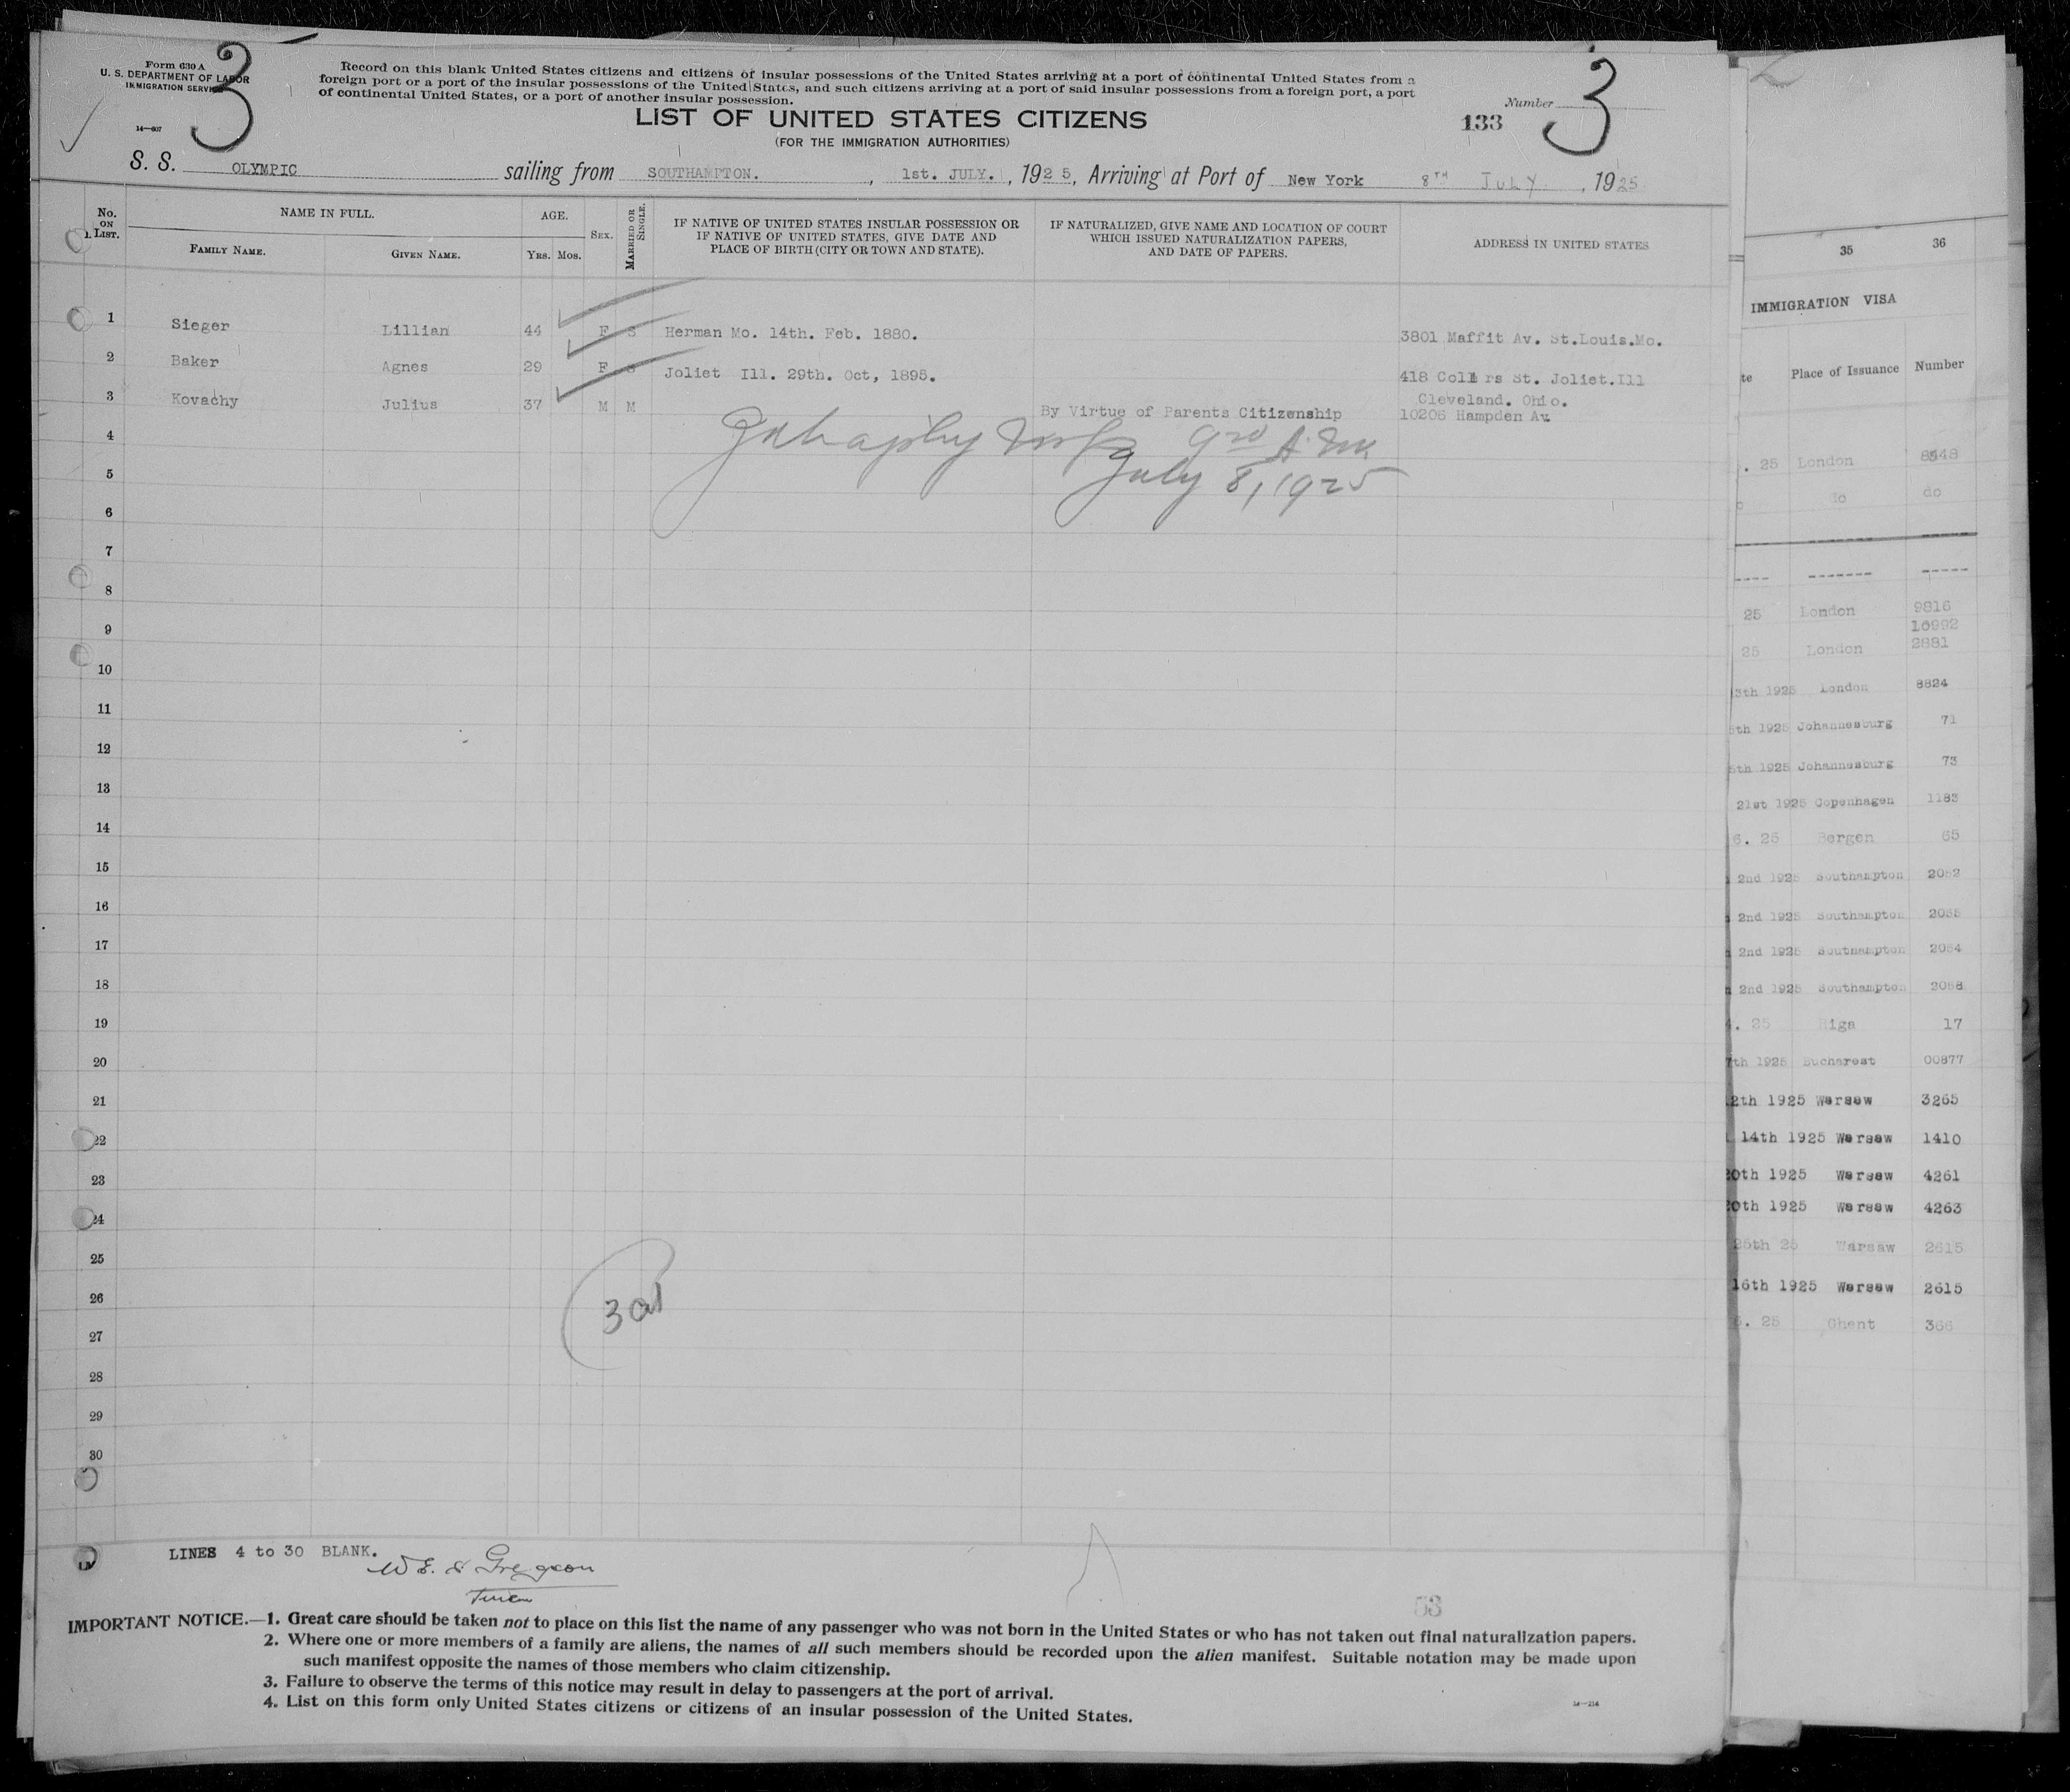 Form 630 A
U. S. DEPARTMENT OF LABOR
IMMIGRATION SERVICE
3
14—607
Record on this blank United States citizens and citizens of insular possessions of the United States arriving at a port of continental United States from a
foreign port or a port of the insular possessions of the United States, and such citizens arriving at a port of said insular possessions from a foreign port, a port
of continental United States, or a port of another insular possession.
Number 3
133
LIST OF UNITED STATES CITIZENS
(FOR THE IMMIGRATION AUTHORITIES)
S. S. OLYMPIC sailing from SOUTHAMPTON. , 1st. JULY. , 1925, Arriving at Port of New York 8TH JULY , 1925
No. ON LIST.
NAME IN FULL.
FAMILY NAME. GIVEN NAME.
AGE.
YRS. MOS.
SEX.
MARRIED OR SINGLE.
IF NATIVE OF UNITED STATES INSULAR POSSESSION OR
IF NATIVE OF UNITED STATES, GIVE DATE AND
PLACE OF BIRTH (CITY OR TOWN AND STATE).
IF NATURALIZED, GIVE NAME AND LOCATION OF COURT
WHICH ISSUED NATURALIZATION PAPERS,
AND DATE OF PAPERS.
ADDRESS IN UNITED STATES
1 Sieger Lillian 44 F S Herman Mo. 14th. Feb. 1880. 3801 Maffit Av. St.Louis.Mo.
2 Baker Agnes 29 F S Joliet Ill. 29th. Oct, 1895. 418 St. Joliet.Ill
3 Kovachy Julius 37 M M By Virtue of Parents Citizenship Cleveland. Ohio.
10206 Hampden Av.
4
July 8, 1925
5
6
7
8
9
10
11
12
13
14
15
16
17
18
19
20
21
22
23
24
25
26
27
28
29
30
LINES 4 to 30 BLANK.
53
IMPORTANT NOTICE.—1. Great care should be taken not to place on this list the name of any passenger who was not born in the United States or who has not taken out final naturalization papers.
2. Where one or more members of a family are aliens, the names of all such members should be recorded upon the alien manifest. Suitable notation may be made upon
such manifest opposite the names of those members who claim citizenship.
3. Failure to observe the terms of this notice may result in delay to passengers at the port of arrival.
4. List on this form only United States citizens or citizens of an insular possession of the United States.
35 36
IMMIGRATION VISA
te Place of Issuance Number
. 25 London
do do
25 London 9816
10992
25 London 2881
8th 1925 London 8824
5th 1925 Johannesburg 71
5th 1925 Johannesburg 73
21st 1925 Copenhagen 1183
6. 25 Bergen 65
2nd 1925 Southampton 2052
2nd 1925 Southampton 2055
2nd 1925 Southampton 2054
2nd 1925 Southampton 2058
4. 25 Riga 17
7th 1925 Bucharest 00877
2th 1925 Warsaw 3265
14th 1925 Warsaw 1410
20th 1925 Warsaw 4261
20th 1925 Warsaw 4263
25th 25 Warsaw 2615
16th 1925 Warsaw 2615
. 25 Ghent 366